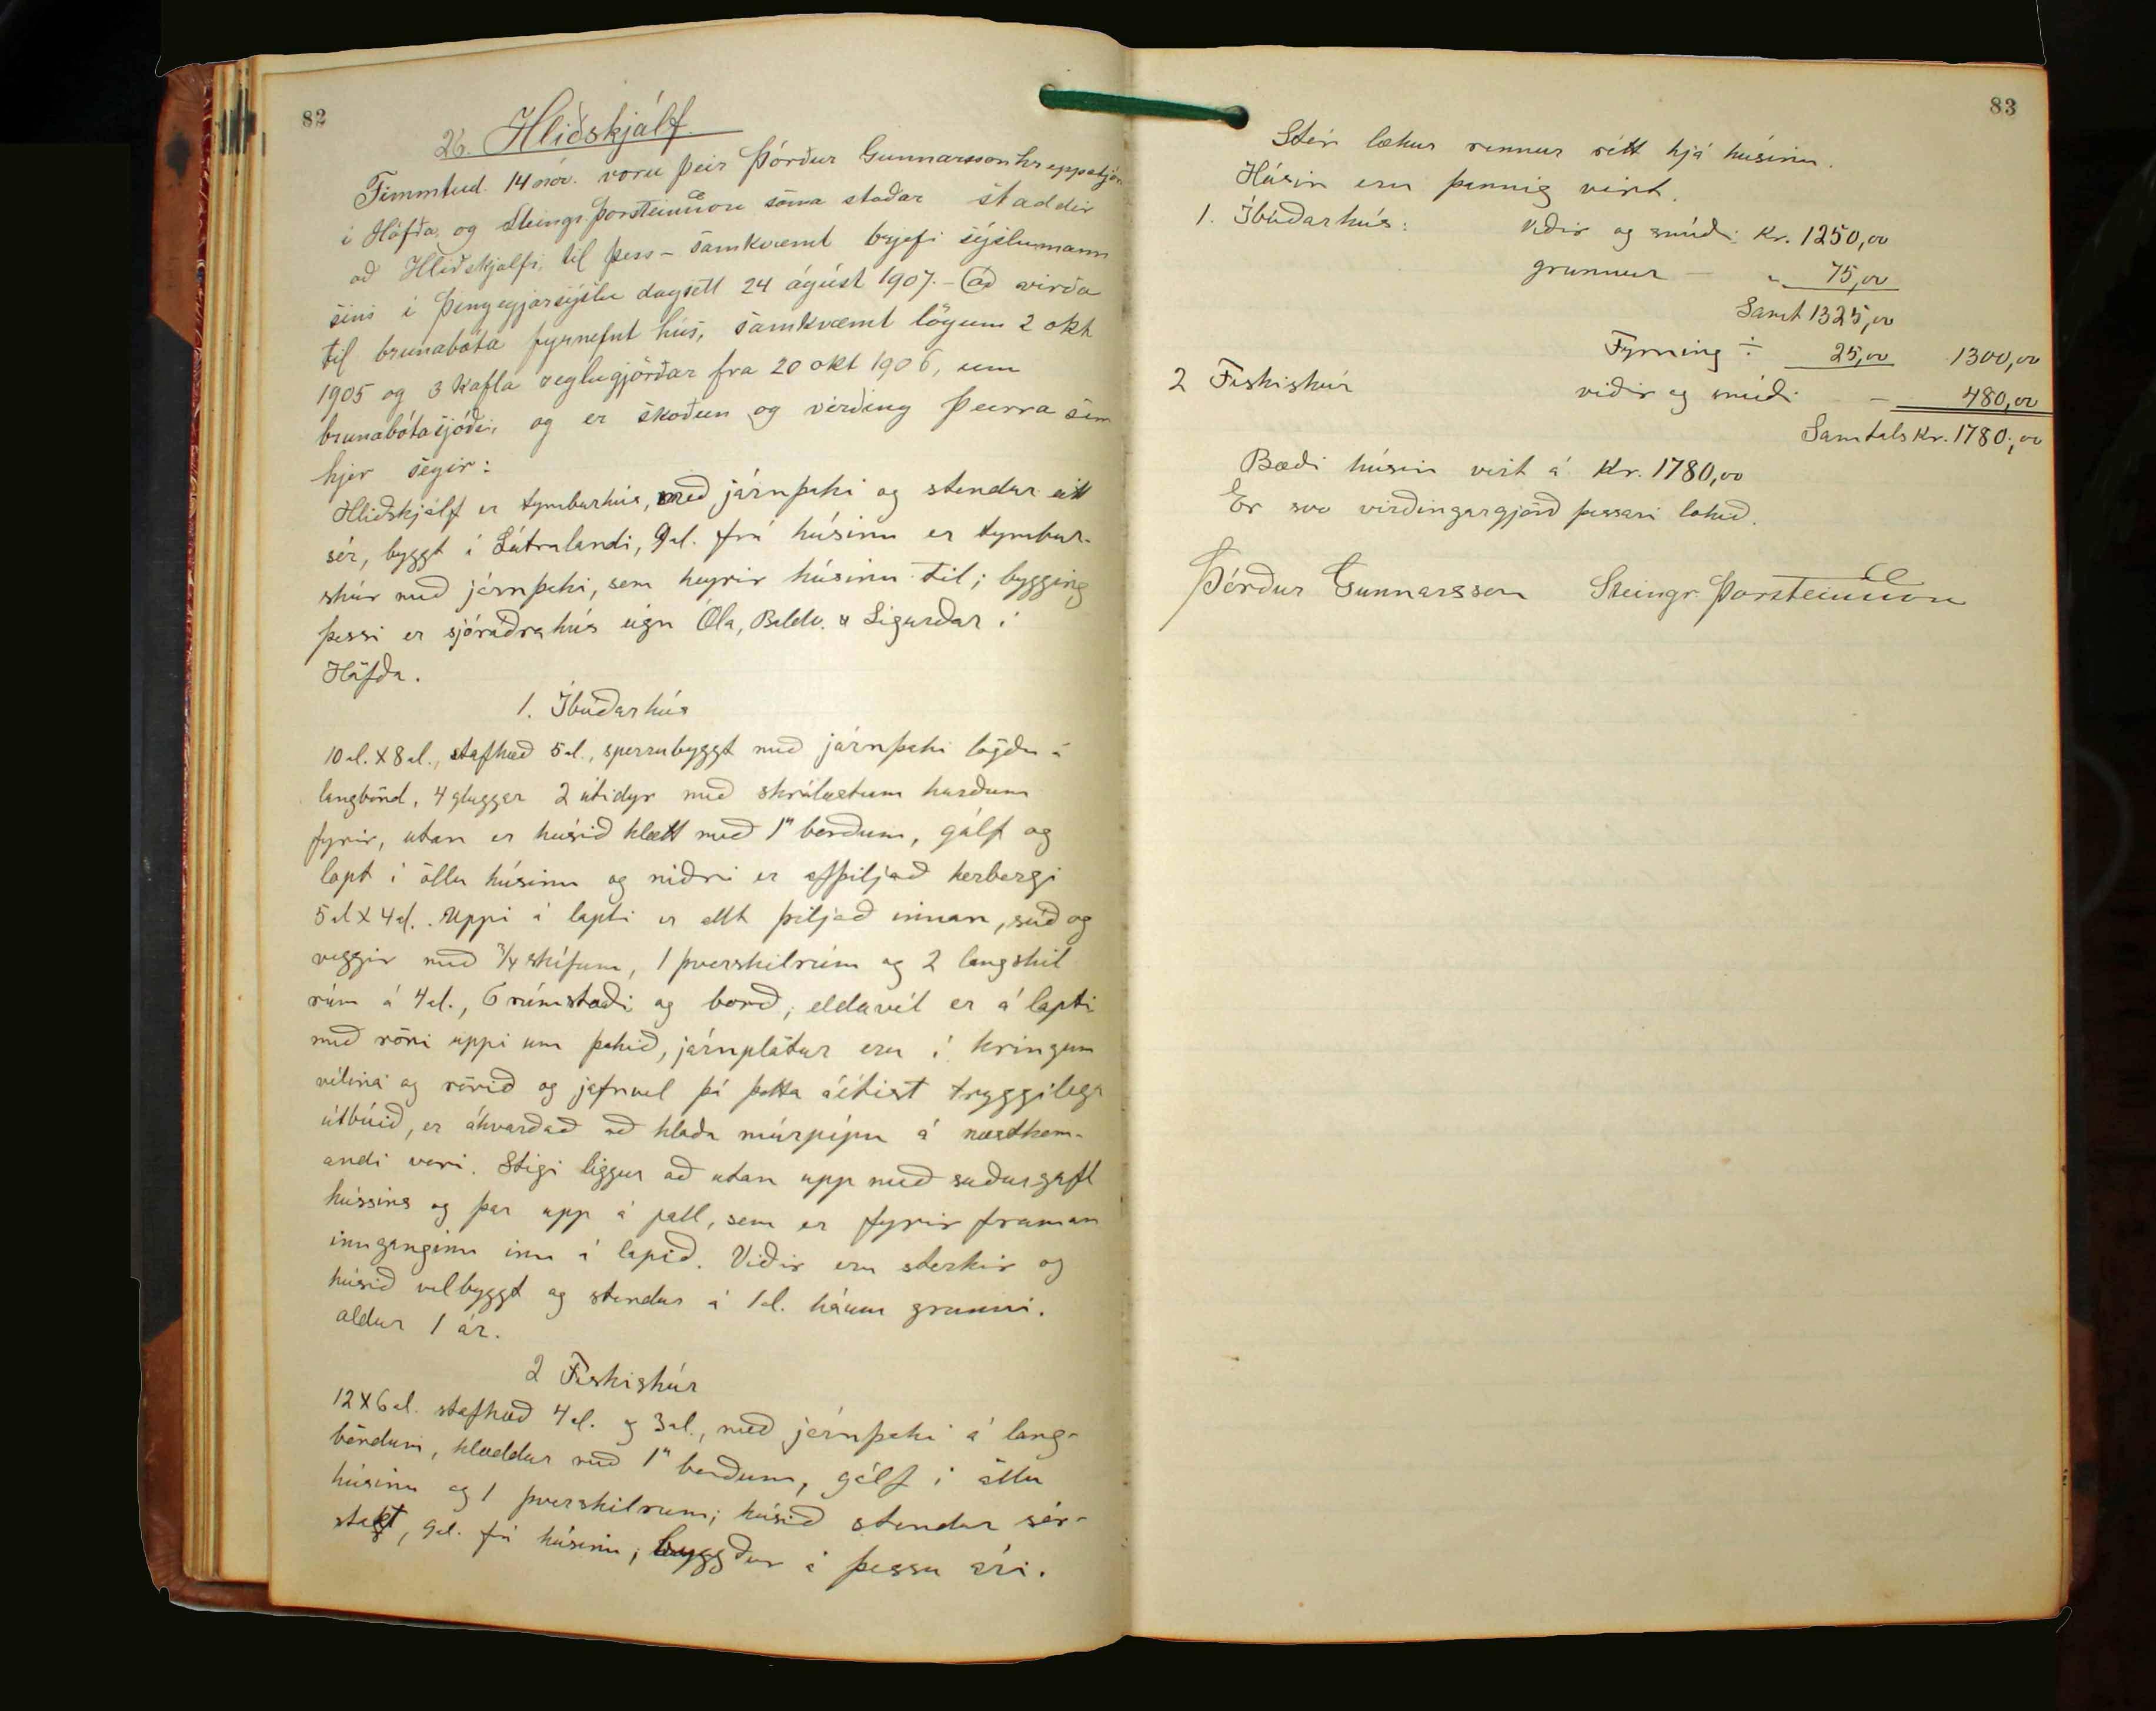 82
26. Hliðskjálf.
Fimmtud. 14 nóv. voru þeir Þórður Gunnarsson hreppstjóri
í Höfða, og Steingr. Þorsteinsson sama staðar staddir
að Hliðskjálfi, til þess - samkvæmt brjefi sýslumanns
sins í Þingeyjarsýslu dagsett 24 ágúst 1907. - að virða
til brunabóta fyrnefnt hús, samkvæmt lögum 2 okt
1905 og 3 kafla reglugjörðar fra 20 okt 1906, um
brunabótasjóði, og er skoðun og virðing þeirra sem
hjer segir:
Hliðskjálf er tymburhús, með járnþaki og stendur eitt
sér, byggt í Látralandi, 9 al. frá húsinu er tymbur-
skúr með járnþaki, sem heyrir húsinu til; bygging
þessi er sjóraðrahús eign Óla, Baldv. & Sigurðar í
Höfða.
1. Íbúðarhús
10 al. X 8 al., stafhæð 5 al., sperrubyggt með járnþaki lögðu á
langbönd, 4 gluggar 2 útidyr með skrálæstum hurðum
fyrir, utan er húsið klætt með 1" borðum, gólf og
lopt í öllu húsinu og niðri er afþiljað herbergi
5 al X 4 al. . Uppi á lopti er allt þiljað innan, súð og
veggir með 3/4 skífum, 1 þverskilrúm og 2 langskil
rúm á 4 al., 6 rúmstæði og borð; eldavél er á lopti
með röri uppi um þakið, járnplötur eru í kringum
vélina og rörið og jafnvel þó þetta álítist tryggilega
útbúið, er ákvarðað að hlaða múrpípu á næstkom-
andi vori. Stigi liggur að utan upp með suðurgafl
hússins og þar upp á pall, sem er fyrir framan
innganginn inn á lopið. Viðir eru sterkir og
húsið vel byggt og stendur á 1 al. háum grunni.
aldur 1 ár.
2 Fiskiskúr
12 X 6 al. stafhæð 4 al. og 3 al., með járnþaki á lang-
böndum, klæddur með 1" borðum, gólf í öllu
húsinu og 1 þverskilrum; húsið stendur sér-
stakt, 9 al. frá húsinu; byggður á þessu ári.
83
Stór lækur rennur rétt hjá húsinu.
Húsin eru þannig virt.
1. Íbúðarhús: Viðir og smíði Kr. 1250,00
grunnur — " 75,00
Samt 1325,00
Fyrning ÷ 25,00 1300,00
2 Fiskiskúr viðir og smíði — 480,00
Samtals Kr. 1780,00
Bæði húsin virt á Kr. 1780,00
Er svo virðingargjörð þessari lokið.
Þórður Gunnarsson Steingr. Þorsteinsson